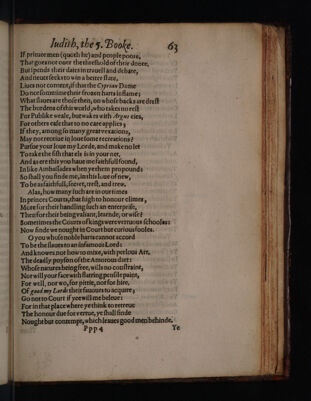 Iudith, the 5. Booke. 63
If priuate men (quoth he) and people poore,
That goes not ouer the threshold of their doore,
But spends their dates in trauell and debate,
And neuer seeks to win a better state,
Liues not content, if that the Cyprian Dame
Do not somtime their frozen harts inflame;
What slaues are those then, on whose backs are drest
The burdens of this world, who takes no rest
For Publike weale, but wakes with Argus eies,
For others ease that to no care applies;
If they, among so many great vexations,
May not receiue in loue some recreations?
Pursue your loue my Lorde, and make no let
To take the fish that els is in your net,
And as ere this you haue me faithfull found,
In like Ambassades when ye them propound;
So shall you finde me, in this loue of new,
To be as faithfull, secret, trest, and trew.
Alas, how many such are in our times
In princes Courts, that high to honour climes,
More for their handling such an enterprise,
Then for their being valiant, learnde, or wise?
Sometimes the Courts of kings were vertuous schooles:
Now finde we nought in Court but curious fooles.
O you whose noble harts cannot accord
To be the slaues to an infamous Lord:
And knowes not how to mixe, with perlous Art,
The deadly poyson of the Amorous dart:
Whose natures being free, wills no constraint,
Nor will your face with flatring pensile paint,
For weil, nor wo, for pittie, nor for hire,
Of good my Lords their fauours to acquire;
Go not to Court if yee will me beleue:
For in that place where ye think to retreue
The honour due for vertue, ye shall finde
Nought but contempt, which leaues good men behinde.
Ppp 4 Ye